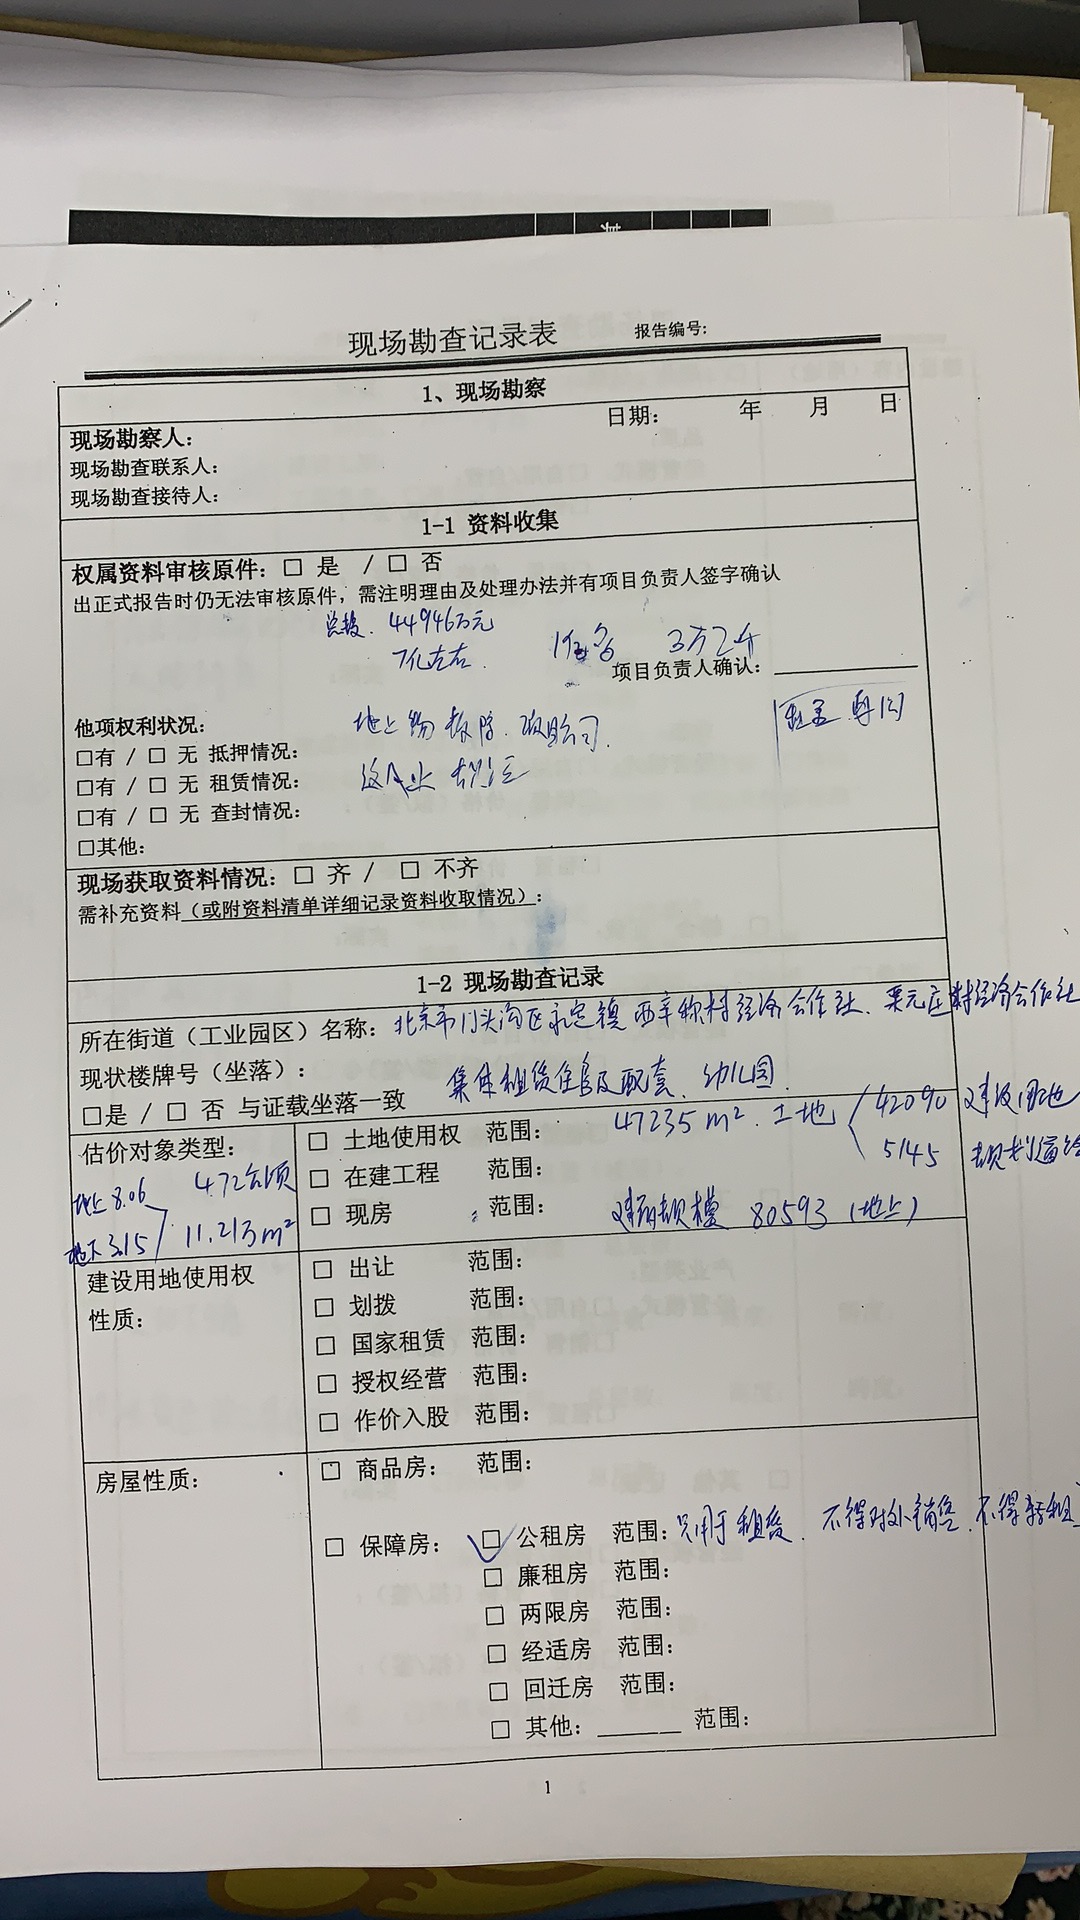 现场勘查记录表 报告编号:
1、现场勘察
日期: 年 月 日
现场勘察人:
现场勘查联系人:
现场勘查接待人:
1-1 资料收集
权属资料审核原件: □ 是 / □ 否
出正式报告时仍无法审核原件，需注明理由及处理办法并有项目负责人签字确认
总投. 44946万元
7亿左右.
项目负责人确认:
他项权利状况:
地上物
□有 / □ 无 抵押情况:
□有 / □ 无 租赁情况:
□有 / □ 无 查封情况:
□其他:
现场获取资料情况: □ 齐 / □ 不齐
需补充资料（或附资料清单详细记录资料收取情况）:
1-2 现场勘查记录
所在街道（工业园区）名称: 北京市门头沟区永定镇西辛称村经济合作社、栗元庄村经济合作社
现状楼牌号（坐落）:
□是 / □ 否 与证载坐落一致 集体租赁住房及配套、幼儿园.
估价对象类型:
地上8.06 4.72公顷
地下3.15 11.213m²
□ 土地使用权 范围: 47235m². 土地 42090 建设用地
5145
□ 在建工程 范围:
□ 现房 范围: 建筑规模 80593（地上）
建设用地使用权
性质:
□ 出让 范围:
□ 划拨 范围:
□ 国家租赁 范围:
□ 授权经营 范围:
□ 作价入股 范围:
房屋性质:
□ 商品房: 范围:
□ 保障房: □ 公租房 范围: 只用于租赁. 不得对外销售. 不得转租
□ 廉租房 范围:
□ 两限房 范围:
□ 经适房 范围:
□ 回迁房 范围:
□ 其他: 范围:
1